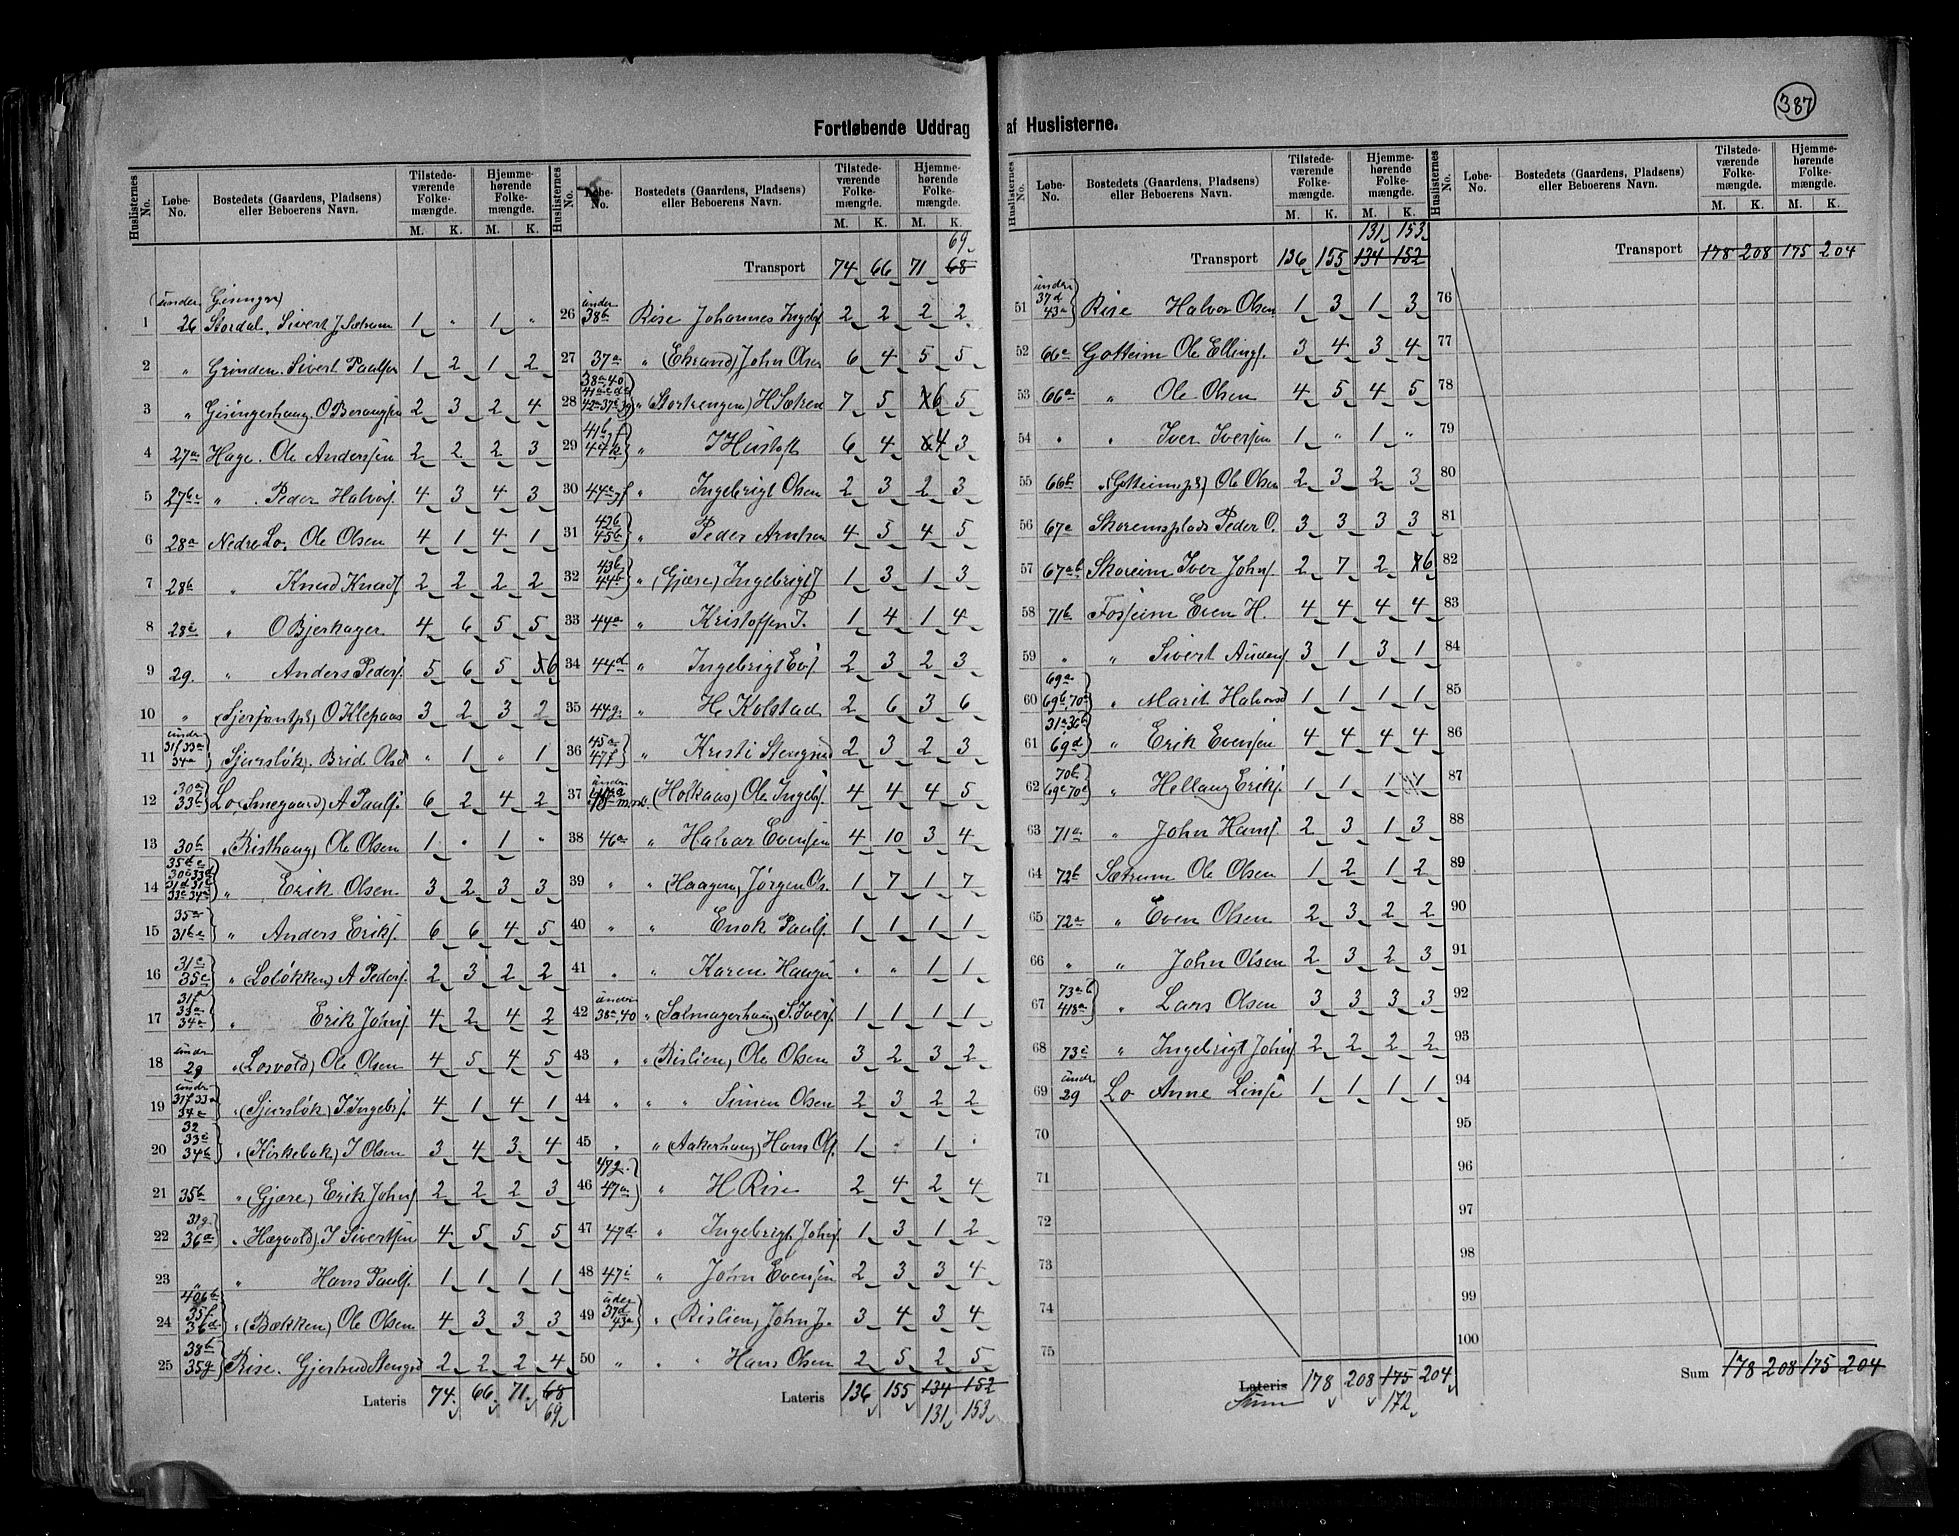 387
Fortløbende Uddrag af Huslisterne.
Huslisternes No. Løbe-No. Bostedets (Gaardens, Pladsens) eller Beboerens Navn. Tilstedeværende Folkemængde. M. K. Hjemmehørende Folkemængde. M. K.
(under Gisinger)
1 26 Stordal, Sivert J Sætrum 1 " 1 "
2 " Grinden. Sivert Paulsen 1 2 1 2
3 " Gisingerhaug. O 2 3 2 4
4 27a Hage. Ole Anderssen 2 2 2 3
5 27bc " Peder Halvors. 4 3 4 3
6 28a Nedre Lo. Ole Olsen 4 1 4 1
7 28b " Knud Knuds. 2 2 2 2
8 28c " O Bjerkager 4 6 5 5
9 29. " Anders Peders. 5 6 5 6
10 " (Sjersjantpl.) O Klepaas 3 2 3 2
11 under 31f 33a 34a Sjursløk. Brid Olsd " 1 " 1
12 30a 33b Lo, (Smegaard) A Pauls. 6 2 4 2
13 30b " (Risthaug) Ole Olsen 1 " 1 "
14 " Erik Olsen 3 2 3 3
15 35a 31bc " Anders Eriks. 6 6 4 5
16 31e 35c " (Loløkken) A Peders. 2 3 2 2
17 31f 33a 34a " Erik Johns. 4 2 4 2
18 under 29 " (Losvold) Ole Olsen 4 5 4 5
19 under 31f 33a 34a " (Sjursløk) I Ingebr. 4 1 4 1
20 32 33c 34b " (Kirkebak) I Olsen 3 4 3 4
21 35b " (Gjære) Erik Johns. 2 2 2 3
22 31g 36a " (Hægvold) I Sivertsen 4 5 5 5
23 " " Hans Pauls. 1 1 1 1
24 40bb 35f 36d " (Bækken) Ole Olsen 4 3 3 3
25 38b 35g Rise. Gjertrud Stengrd 2 2 2 4
Lateris 74 66 71 68
69
Transport 74 66 71 68
69
26 under 38b Rise Johannes Ingebr. 2 2 2 2
27 37a " John Olsen 6 4 5 5
28 " (Storrengen) H Sætren 7 5 6 5
29 " I Hustoft 6 4 4 3
30 44ef " Ingebrigt Olsen 2 3 2 3
31 42b 45b " Peder Arntsen 4 5 4 5
32 43b 44b " (Gjære) Ingebrigt J 1 3 1 3
33 44a " Kristoffen I. 1 4 1 4
34 44d " Ingebrigt Ev. 2 3 2 3
35 44g. " H. Kolstad 2 6 3 6
36 45a 47f " Kristi Stengrd 2 3 2 3
37 under " (Holkaas) Ole Ingebr. 4 4 4 5
38 46a " Halvar Evensen 4 10 3 4
39 " " (Haagen) Jørgen Os. 1 7 1 7
40 " " Enok Pauls. 1 1 1 1
41 " " Karen Haugen " " 1 1
42 under 38a 40 " (Salmagerhaug) S. Ivers. 1 1 1 1
43 " " (Rislien) Ole Olsen 3 2 3 2
44 " " " Simen Olsen 2 3 2 2
45 " " (Aakerhaug) Hans Ols. 1 " 1 "
46 47g. 47a " H Rise 2 4 2 4
47 47d " Ingebrigt Johns. 1 3 1 2
48 47i " John Evensen 2 3 3 4
49 under 37d 43a " (Rislien) John J. 3 4 3 4
50 " " " Hans Olsen 2 5 2 5
Lateris 136 155 134 152
131 153
131 153
Transport 136 155 134 152
51 under 37d 43a Rise Halvor Olsen 1 3 1 3
52 66c Gotteim Ole Ellings. 3 4 3 4
53 66a " Ole Olsen 4 5 4 5
54 " " Iver Iversen 1 " 1 "
55 66b " (Gotteimspl) Ole Olsen 2 3 2 3
56 67c Skoremsplads Peder O. 3 3 3 3
57 67ab Skoreim Iver Johns. 2 7 2 6
58 71b Fosseim Even H. 4 4 4 4
59 " " Sivert Anders. 3 1 3 1
60 69a 69b 70a " Marit Halvorsd 1 1 1 1
61 31a 36b 69d " Erik Evensen 4 4 4 4
62 70b 69c 70c " Hellaug Eriks. 1 1 1 1
63 71a " John Hans. 2 3 1 3
64 72b Sætrum Ole Olsen 1 2 1 2
65 72a " Even Olsen 2 3 2 2
66 " " John Olsen 2 3 2 3
67 73ab 48a " Lars Olsen 3 3 3 3
68 73c " Ingebrigt Johns. 2 2 2 2
69 under 29 Lo Anne Linse 1 1 1 1
70
71
72
73
74
75
Lateris 178 208 175 204
Sum 172
Transport 178 208 175 204
76
77
78
79
80
81
82
83
84
85
86
87
88
89
90
91
92
93
94
95
96
97
98
99
100
Sum 178 208 175 204